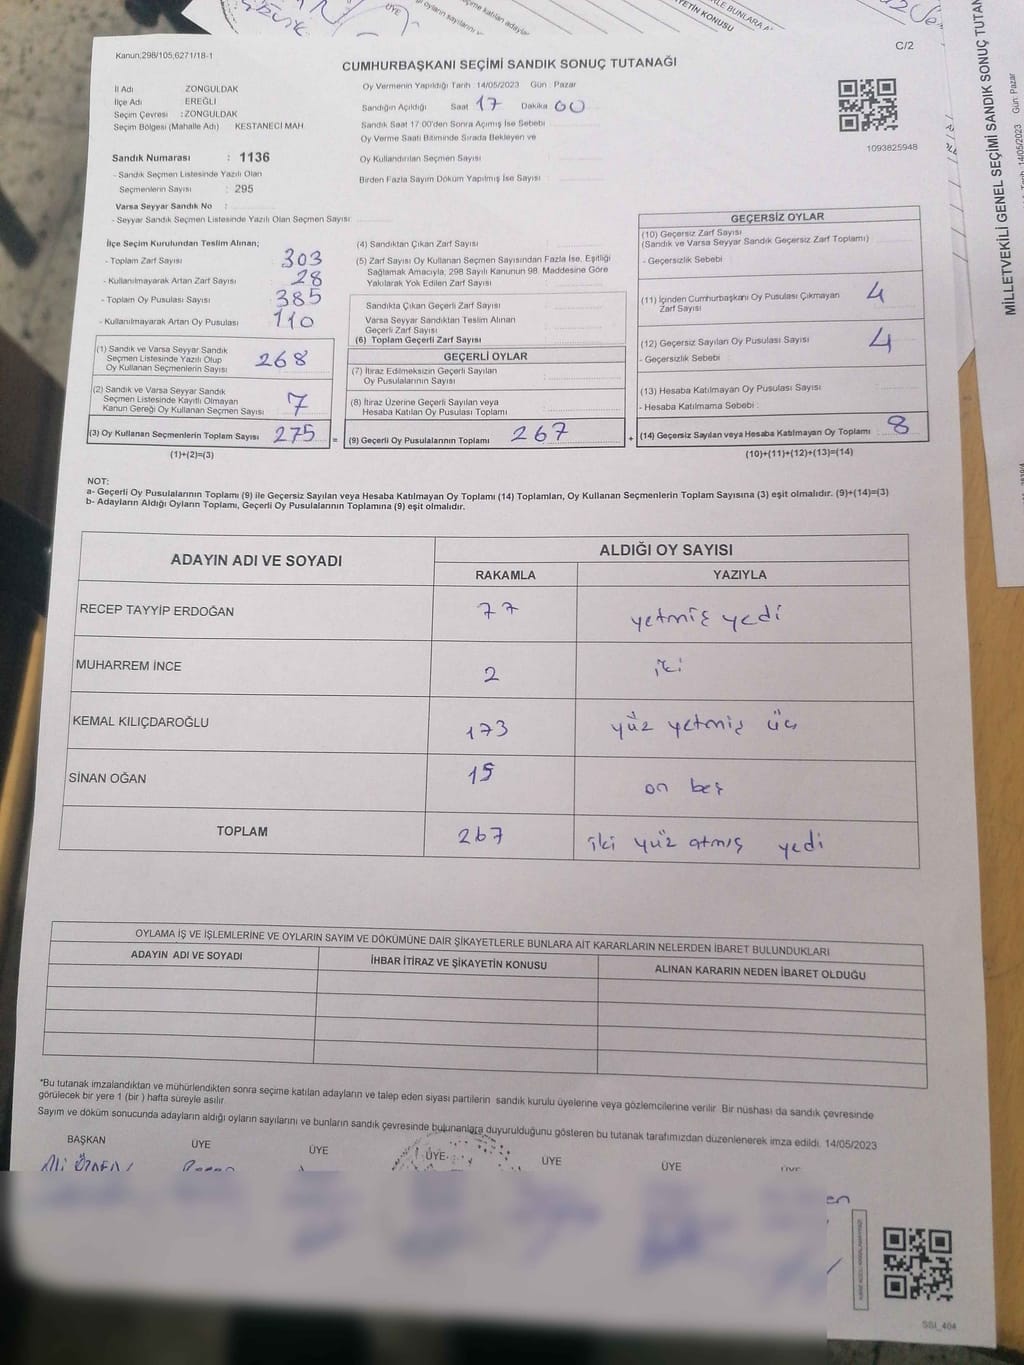 Kanun:298/105,6271/18-1
C/2
CUMHURBAŞKANI SEÇİMİ SANDIK SONUÇ TUTANAĞI
İl Adı ZONGULDAK
İlçe Adı EREĞLİ
Seçim Çevresi : ZONGULDAK
Seçim Bölgesi (Mahalle Adı) KESTANECİ MAH.
Sandık Numarası : 1136
- Sandık Seçmen Listesinde Yazılı Olan
Seçmenlerin Sayısı : 295
Varsa Seyyar Sandık No :
- Seyyar Sandık Seçmen Listesinde Yazılı Olan Seçmen Sayısı
Oy Vermenin Yapıldığı Tarih :14/05/2023 Gün :Pazar
Sandığın Açıldığı Saat 17 Dakika 00
Sandık Saat 17.00'den Sonra Açılmış İse Sebebi
Oy Verme Saati Bitiminde Sırada Bekleyen ve
Oy Kullandırılan Seçmen Sayısı
Birden Fazla Sayım Döküm Yapılmış İse Sayısı
1093825948
İlçe Seçim Kurulundan Teslim Alınan;
- Toplam Zarf Sayısı : 303
- Kullanılmayarak Artan Zarf Sayısı : 28
- Toplam Oy Pusulası Sayısı : 385
- Kullanılmayarak Artan Oy Pusulası : 110
(1) Sandık ve Varsa Seyyar Sandık
Seçmen Listesinde Yazılı Olup
Oy Kullanan Seçmenlerin Sayısı 268
(2) Sandık ve Varsa Seyyar Sandık
Seçmen Listesinde Kayıtlı Olmayan
Kanun Gereği Oy Kullanan Seçmen Sayısı 7
(3) Oy Kullanan Seçmenlerin Toplam Sayısı 275
(1)+(2)=(3)
(4) Sandıktan Çıkan Zarf Sayısı
(5) Zarf Sayısı Oy Kullanan Seçmen Sayısından Fazla İse, Eşitliği
Sağlamak Amacıyla, 298 Sayılı Kanunun 98. Maddesine Göre
Yakılarak Yok Edilen Zarf Sayısı
Sandıkta Çıkan Geçerli Zarf Sayısı
Varsa Seyyar Sandıktan Teslim Alınan
Geçerli Zarf Sayısı
(6) Toplam Geçerli Zarf Sayısı
GEÇERLİ OYLAR
(7) İtiraz Edilmeksizin Geçerli Sayılan
Oy Pusulalarının Sayısı
(8) İtiraz Üzerine Geçerli Sayılan veya
Hesaba Katılan Oy Pusulası Toplamı
= (9) Geçerli Oy Pusulalarının Toplamı 267
GEÇERSİZ OYLAR
(10) Geçersiz Zarf Sayısı
(Sandık ve Varsa Seyyar Sandık Geçersiz Zarf Toplamı)
- Geçersizlik Sebebi :
(11) İçinden Cumhurbaşkanı Oy Pusulası Çıkmayan
Zarf Sayısı 4
(12) Geçersiz Sayılan Oy Pusulası Sayısı 4
- Geçersizlik Sebebi
(13) Hesaba Katılmayan Oy Pusulası Sayısı
- Hesaba Katılmama Sebebi :
+ (14) Geçersiz Sayılan veya Hesaba Katılmayan Oy Toplamı : 8
(10)+(11)+(12)+(13)=(14)
NOT:
a- Geçerli Oy Pusulalarının Toplamı (9) ile Geçersiz Sayılan veya Hesaba Katılmayan Oy Toplamı (14) Toplamları, Oy Kullanan Seçmenlerin Toplam Sayısına (3) eşit olmalıdır. (9)+(14)=(3)
b- Adayların Aldığı Oyların Toplamı, Geçerli Oy Pusulalarının Toplamına (9) eşit olmalıdır.
ADAYIN ADI VE SOYADI
ALDIĞI OY SAYISI
RAKAMLA YAZIYLA
RECEP TAYYİP ERDOĞAN 77 yetmiş yedi
MUHARREM İNCE 2 iki
KEMAL KILIÇDAROĞLU 173 yüz yetmiş üç
SİNAN OĞAN 15 on beş
TOPLAM 267 iki yüz atmış yedi
OYLAMA İŞ VE İŞLEMLERİNE VE OYLARIN SAYIM VE DÖKÜMÜNE DAİR ŞİKAYETLERLE BUNLARA AİT KARARLARIN NELERDEN İBARET BULUNDUKLARI
ADAYIN ADI VE SOYADI İHBAR İTİRAZ VE ŞİKAYETİN KONUSU ALINAN KARARIN NEDEN İBARET OLDUĞU
*Bu tutanak imzalandıktan ve mühürlendikten sonra seçime katılan adayların ve talep eden siyasi partilerin sandık kurulu üyelerine veya gözlemcilerine verilir. Bir nüshası da sandık çevresinde
görülecek bir yere 1 (bir ) hafta süreyle asılır.
Sayım ve döküm sonucunda adayların aldığı oyların sayılarını ve bunların sandık çevresinde bulunanlara duyurulduğunu gösteren bu tutanak tarafımızdan düzenlenerek imza edildi. 14/05/2023
BAŞKAN ÜYE ÜYE ÜYE ÜYE ÜYE ÜYE
SSI_404
MİLLETVEKİLİ GENEL SEÇİMİ SANDIK SONUÇ
14/05/2023 Gün: Pazar